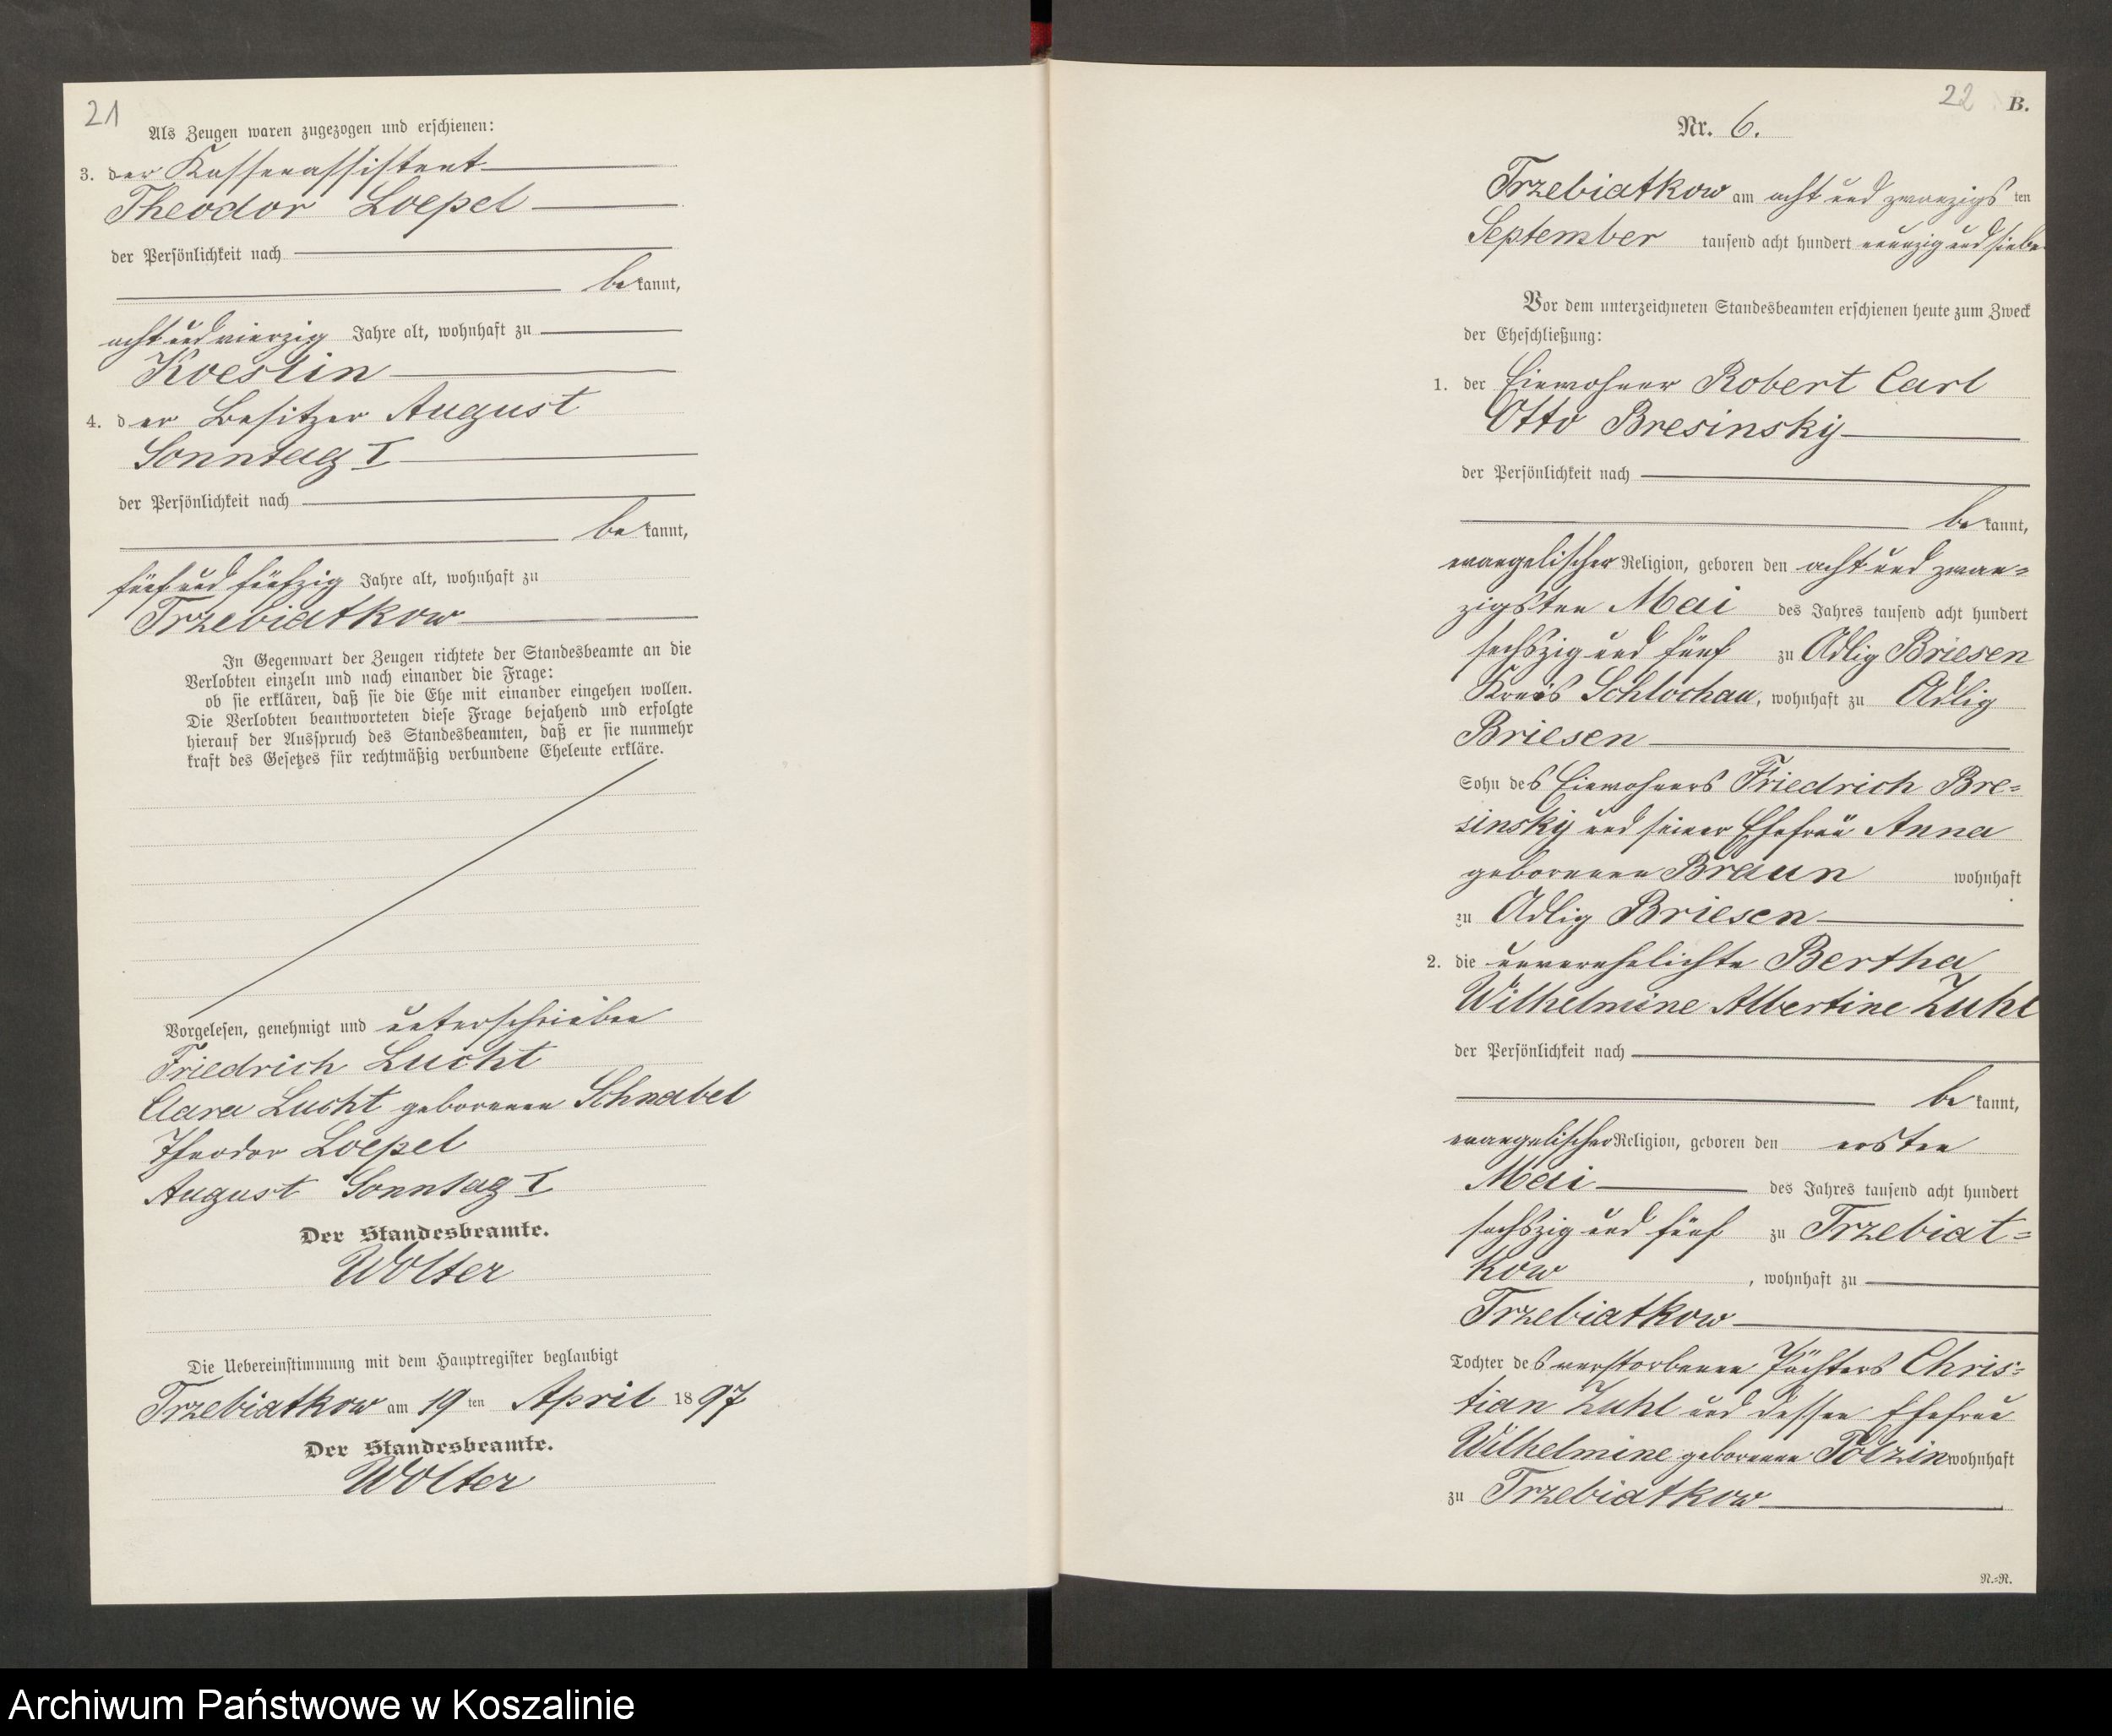 21
Als Zeugen waren zugezogen und erschienen:
3. der Kassenassistent
Theodor Loepel
der Persönlichkeit nach
bekannt,
acht und vierzig Jahre alt, wohnhaft zu
Koeslin
4. der Besitzer August
Sonntag I
der Persönlichkeit nach
bekannt,
fünf und fünfzig Jahre alt, wohnhaft zu
Trzebiatkow
In Gegenwart der Zeugen richtete der Standesbeamte an die
Verlobten einzeln und nach einander die Frage:
ob sie erklären, daß sie die Ehe mit einander eingehen wollen.
Die Verlobten beantworteten diese Frage bejahend und erfolgte
hierauf der Ausspruch des Standesbeamten, daß er sie nunmehr
kraft des Gesetzes für rechtmäßig verbundene Eheleute erkläre.
Vorgelesen, genehmigt und unterschrieben
Friedrich Lucht
Clara Lucht geborenen Schnabel
Theodor Loepel
August Sonntag I
Der Standesbeamte.
Wolter
Die Uebereinstimmung mit dem Hauptregister beglaubigt
Trzebiatkow am 19ten April 1897
Der Standesbeamte.
Wolter
22 B.
Nr. 6.
Trzebiatkow am acht und zwanzigsten
September tausend acht hundert neunzig und siebe
Vor dem unterzeichneten Standesbeamten erschienen heute zum Zweck
der Eheschließung:
1. der Einwohner Robert Carl
Otto Bresinsky
der Persönlichkeit nach
bekannt,
evangelischer Religion, geboren den acht und zwan-
zigsten Mai des Jahres tausend acht hundert
sechszig und fünf zu Adlig Briesen
Kreis Schlochau, wohnhaft zu Adlig
Briesen
Sohn des Einwohners Friedrich Bre-
sinsky und seiner Ehefrau Anna
geborenen Braun wohnhaft
zu Adlig Briesen
2. die unverehelichte Bertha
Wilhelmine Albertine Zuhl
der Persönlichkeit nach
bekannt,
evangelischer Religion, geboren den ersten
Mai des Jahres tausend acht hundert
sechszig und fünf zu Trzebiat-
kow, wohnhaft zu
Trzebiatkow
Tochter des verstorbenen Pächters Chris-
tian Zuhl und dessen Ehefrau
Wilhelmine geborenen Polzin wohnhaft
zu Trzebiatkow
N.-R.
Archiwum Państwowe w Koszalinie